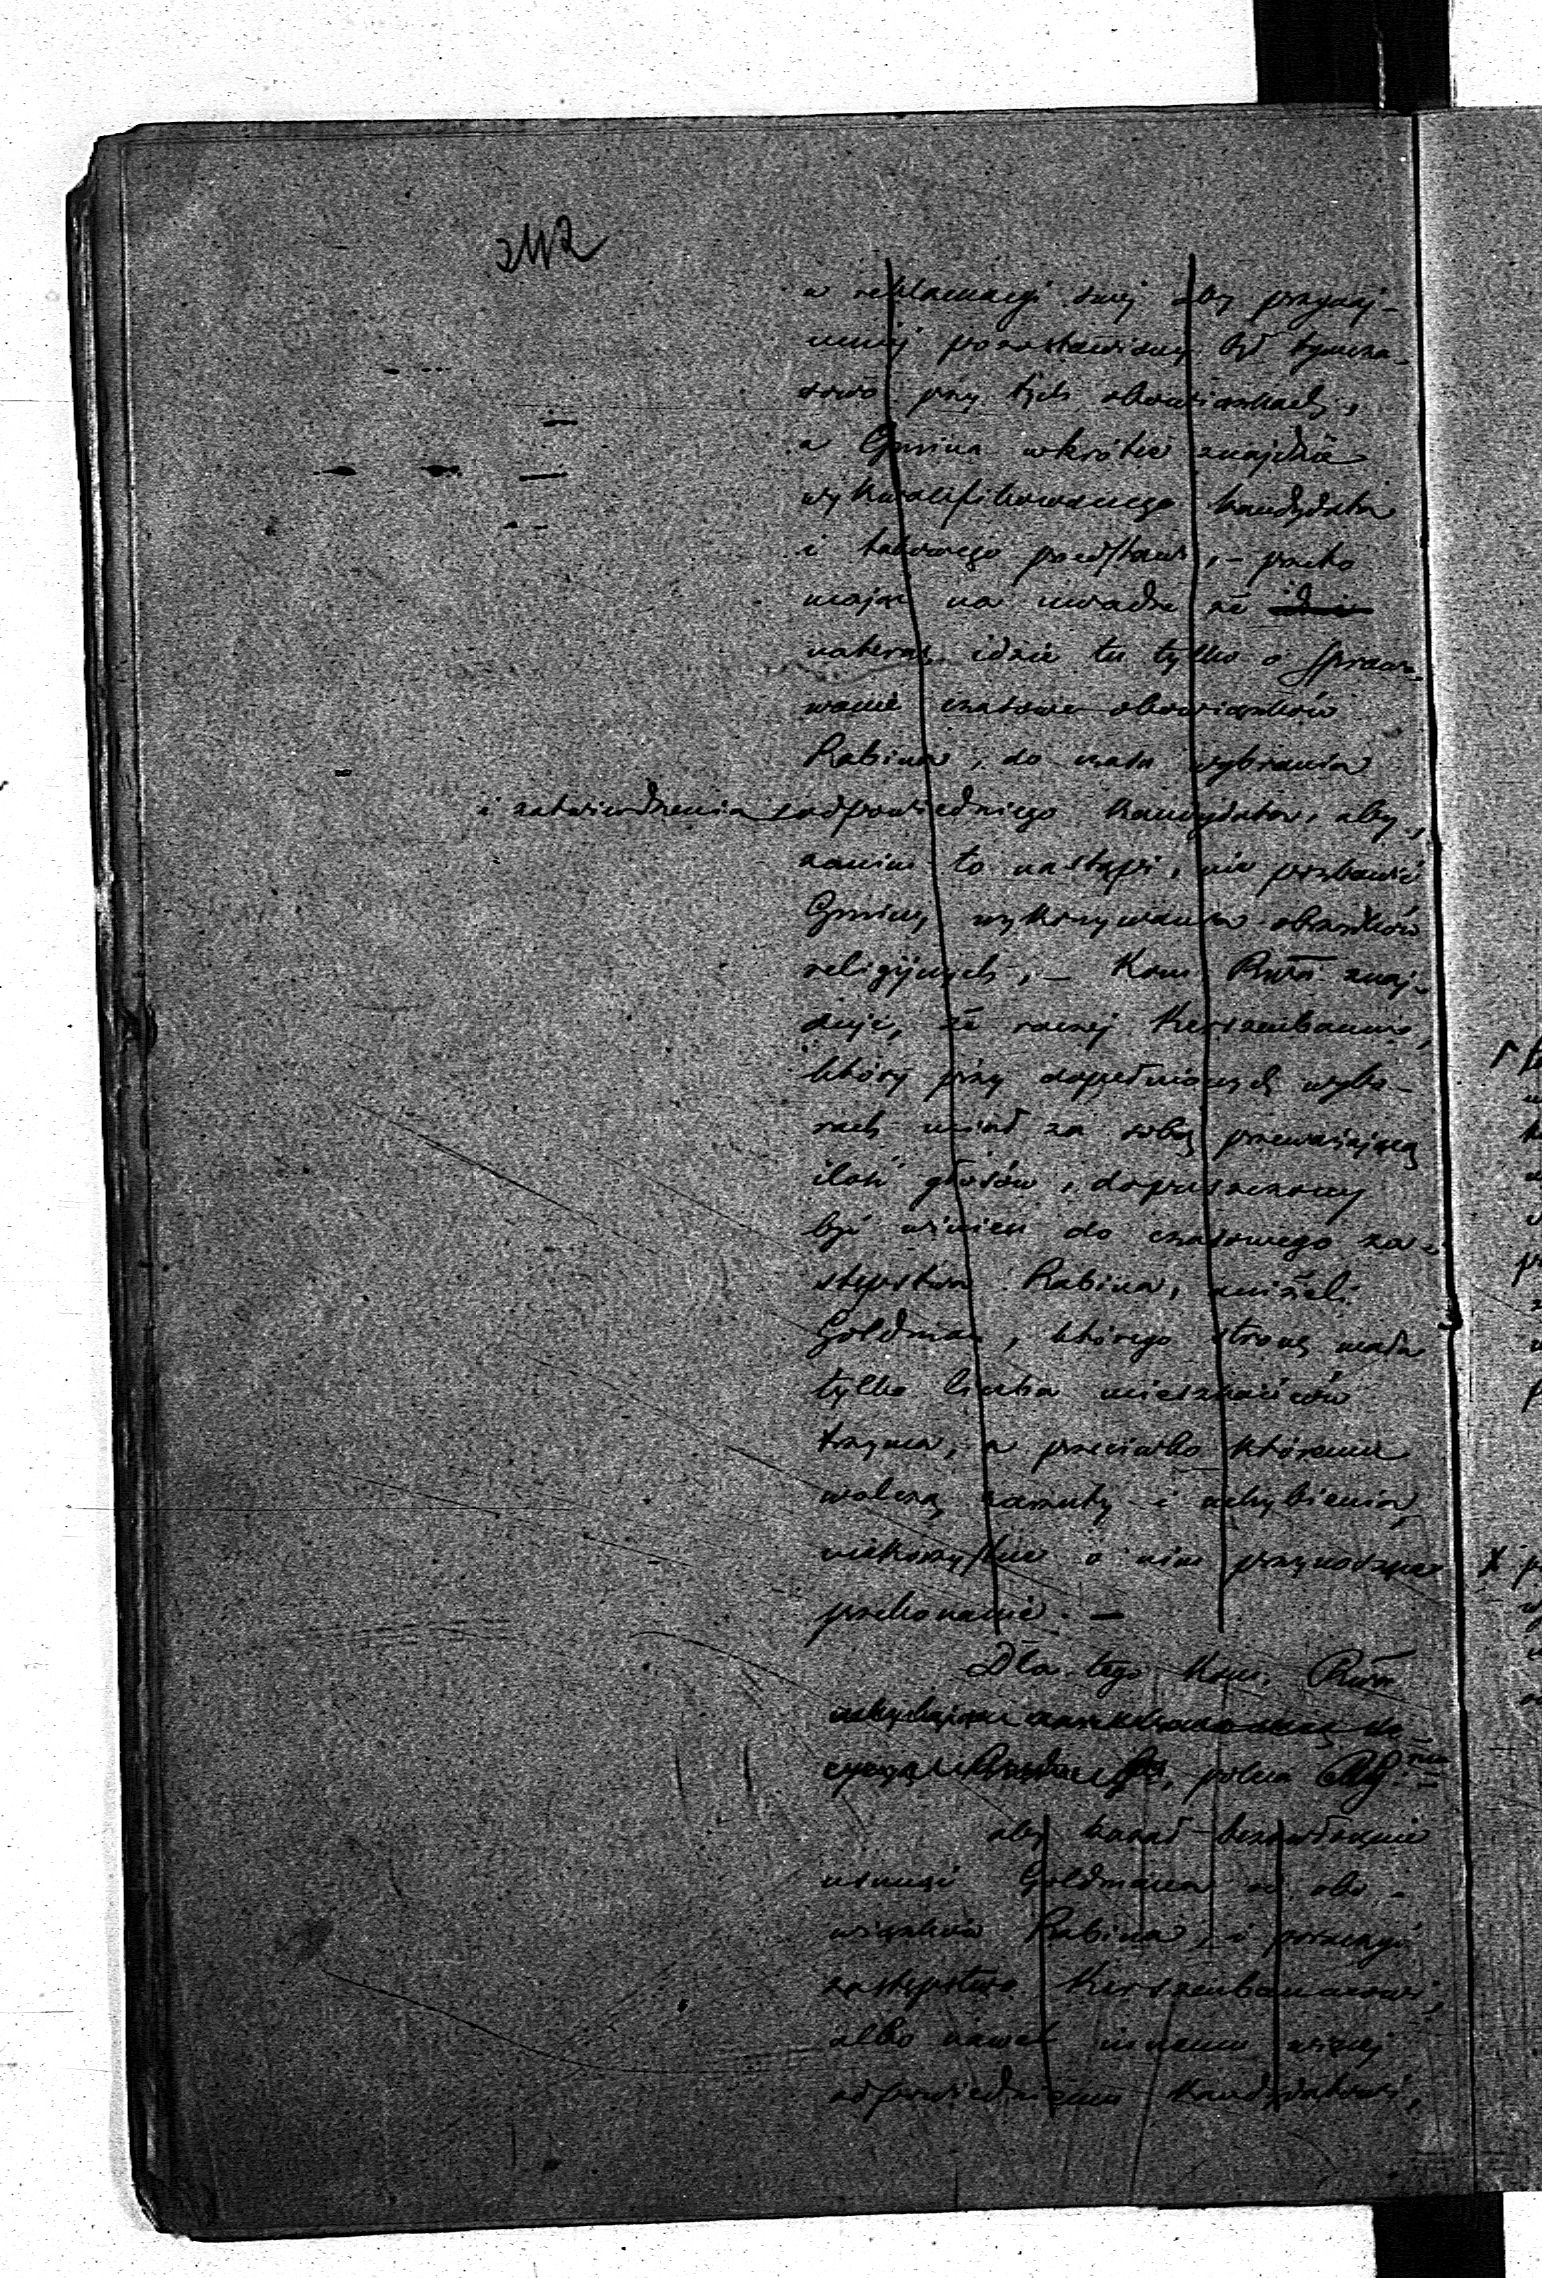 242
w reklamacyi swej aby przynaj-
mniej pozostawiony był tymcza-
sowo przy tych obowiązkach,
a Gmina wkrótce znajdzie
wykwalifikowanego kandydata
i takowego przedstawi, - przeto
mając na uwadze że
nateraz idzie tu tylko o sprawo-
wanie czasowe obowiązków
Rabina, do czasu wybrania
i zatwierdzenia odpowiedniego kandydata, aby,
zanim to nastąpi, nie pozbawić
Gminy wykonywania obrządków
religijnych, - Kom Rząd znaj-
duje, że raczej Kerszenbaum,
który przy dopełnionych wybo-
rach miał za sobą przeważającą
ilość głosów, dopuszczony
być winien do czasowego za-
stępstwa Rabina, aniżeli
Goldman, którego stronę mała
tylko liczba mieszkańców
trzyma, a przeciwko któremu
walczą zarzuty i uchybienia,
niekorzystne o nim przynoszące
przekonanie. -
Dla tego Kom. Rząd
poleca
aby kazał bezzwłocznie
usunąć Goldmana od obo-
wiązków Rabina, i poruczyć
zastępstwo Kerszenbaumowi,
albo nawet innemu więcej
odpowiedniemu kandydatowi,